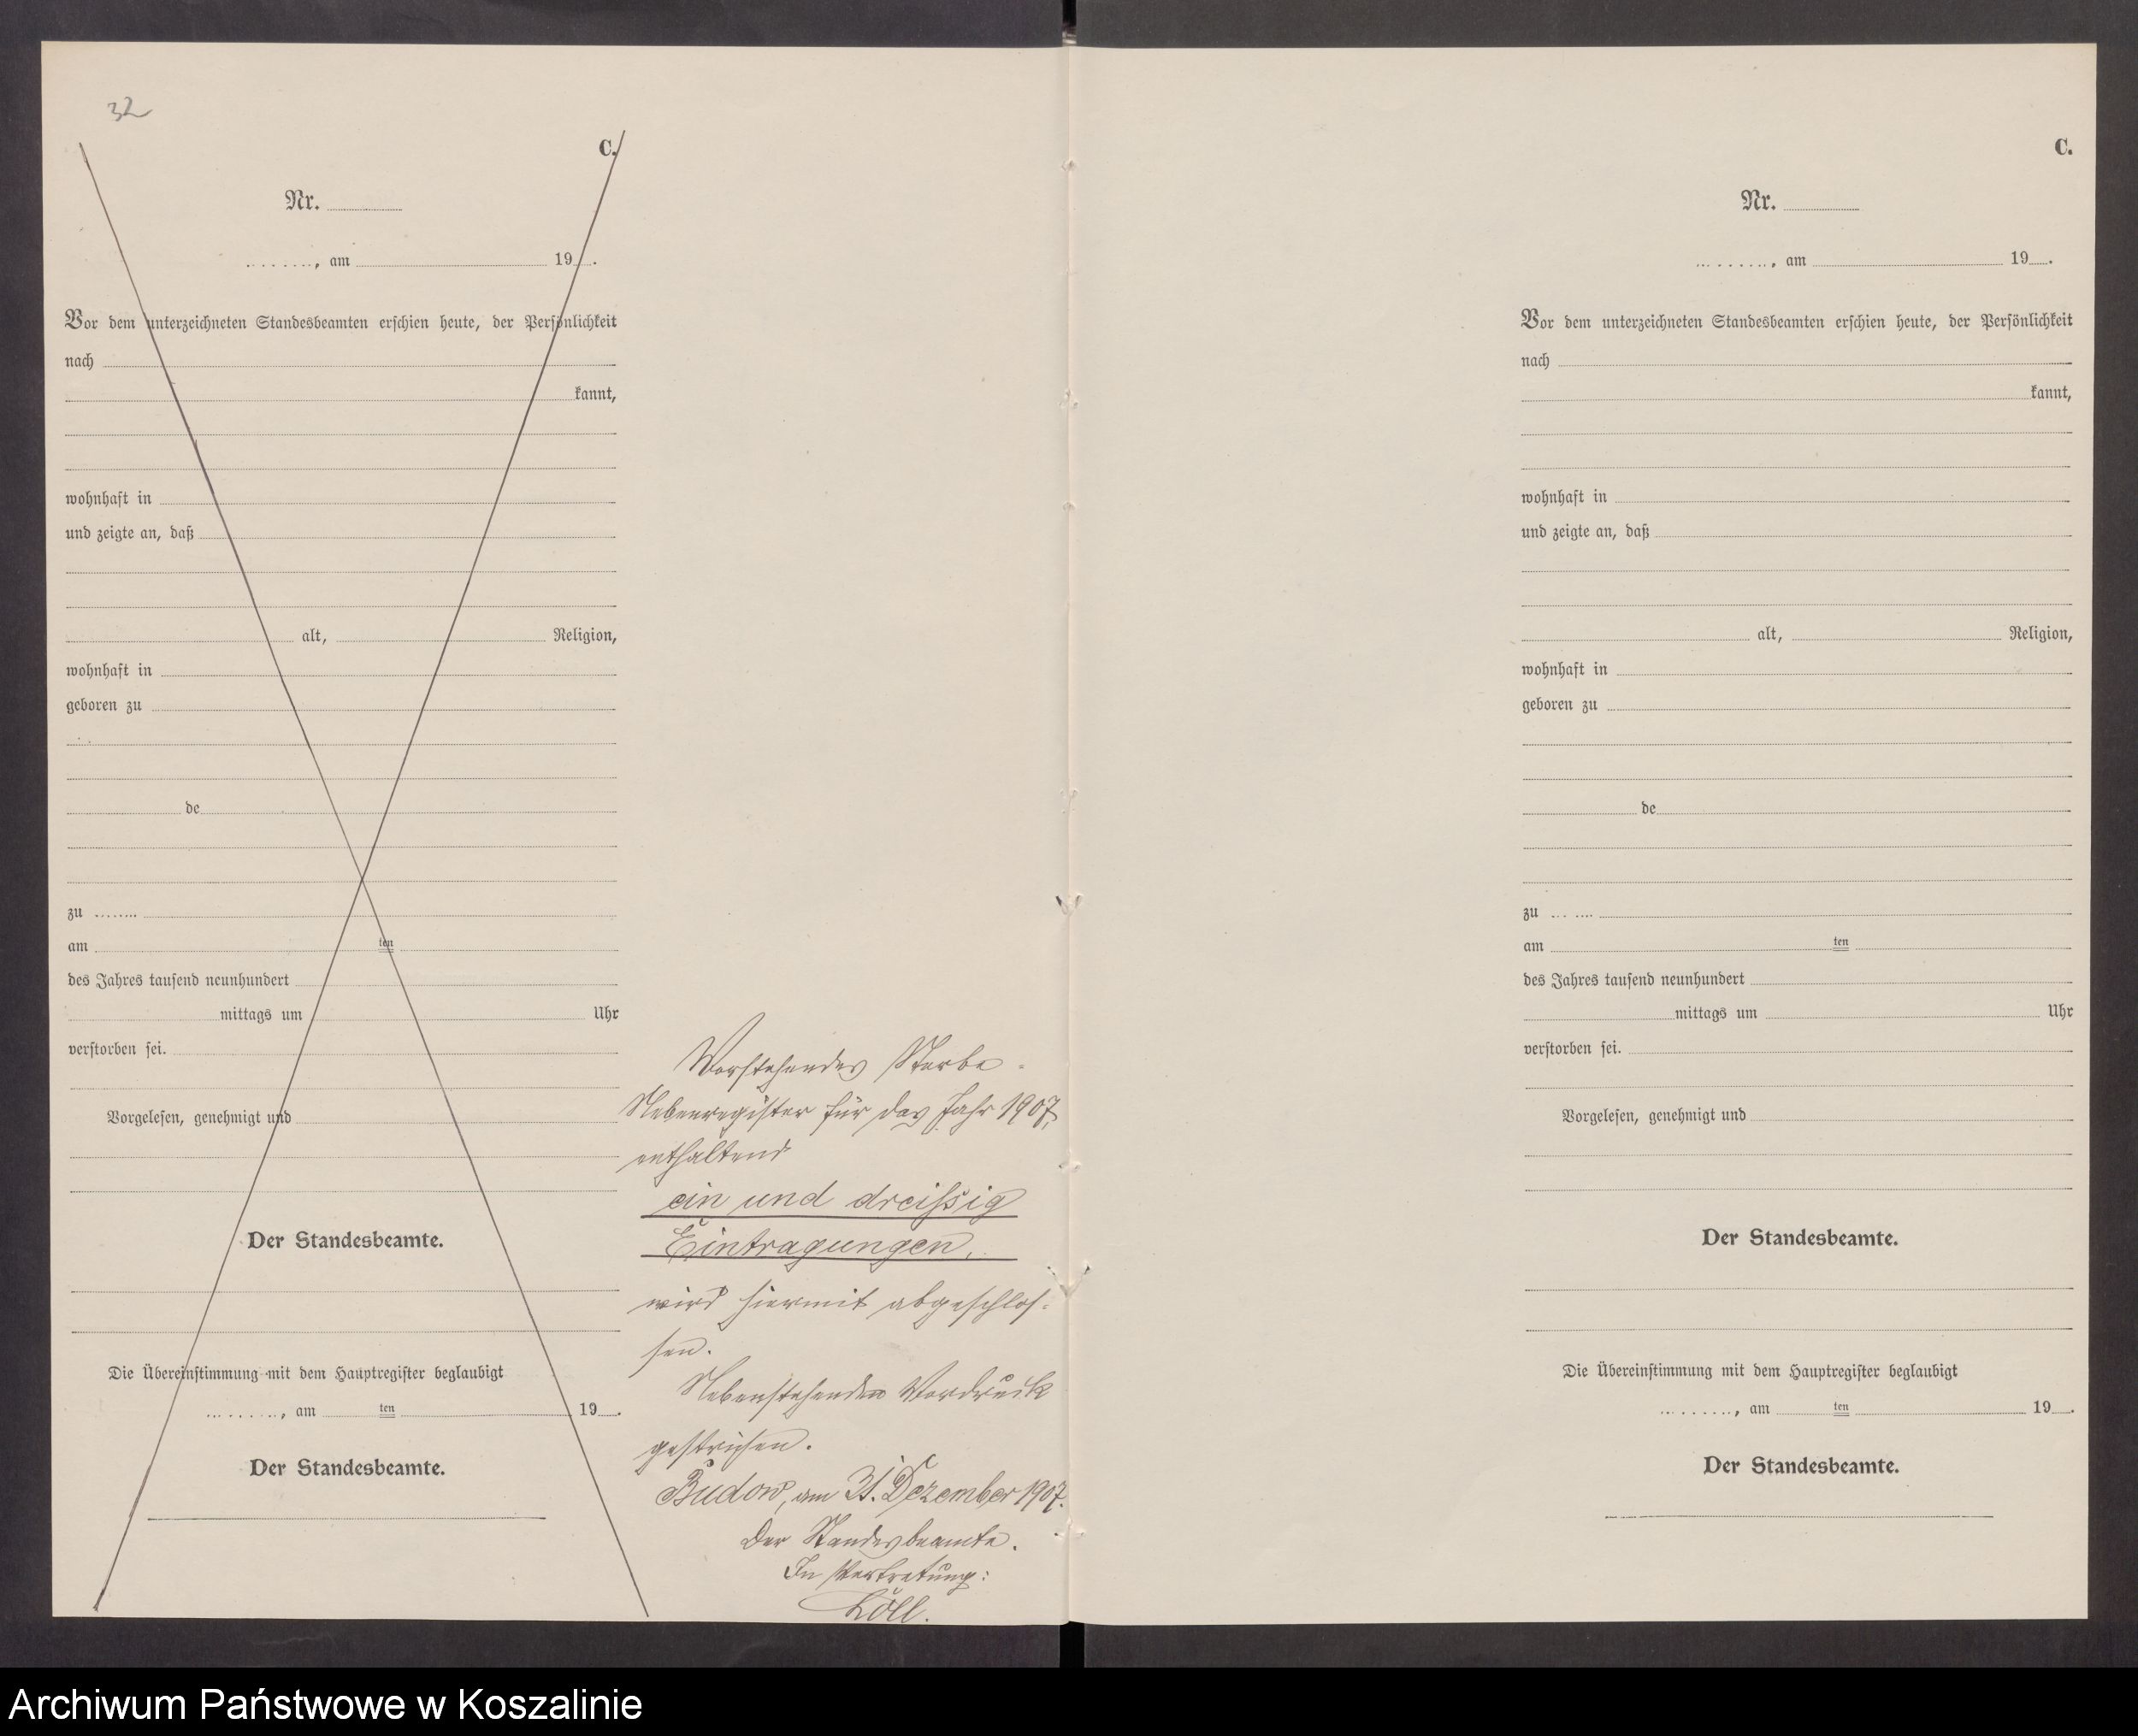 32
C.
Nr.
, am 19 .
Vor dem unterzeichneten Standesbeamten erschien heute, der Persönlichkeit
nach
kannt,
wohnhaft in
und zeigte an, daß
alt, Religion,
wohnhaft in
geboren zu
de
zu
am ten
des Jahres tausend neunhundert
mittags um Uhr
verstorben sei.
Vorgelesen, genehmigt und
Der Standesbeamte.
Die Übereinstimmung mit dem Hauptregister beglaubigt
, am ten 19 .
Der Standesbeamte.
Vorstehendes Sterbe-
Nebenregister für das Jahr 1907,
enthaltend
ein und dreißig
Eintragungen,
wird hiermit abgeschlos-
sen.
Nebenstehenden Vordruck
gestrichen.
Budow, am 31. Dezember 1907.
Der Standesbeamte.
In Vertretung:
Köll.
C.
Nr.
, am 19 .
Vor dem unterzeichneten Standesbeamten erschien heute, der Persönlichkeit
nach
kannt,
wohnhaft in
und zeigte an, daß
alt, Religion,
wohnhaft in
geboren zu
de
zu
am ten
des Jahres tausend neunhundert
mittags um Uhr
verstorben sei.
Vorgelesen, genehmigt und
Der Standesbeamte.
Die Übereinstimmung mit dem Hauptregister beglaubigt
, am ten 19 .
Der Standesbeamte.
Archiwum Państwowe w Koszalinie